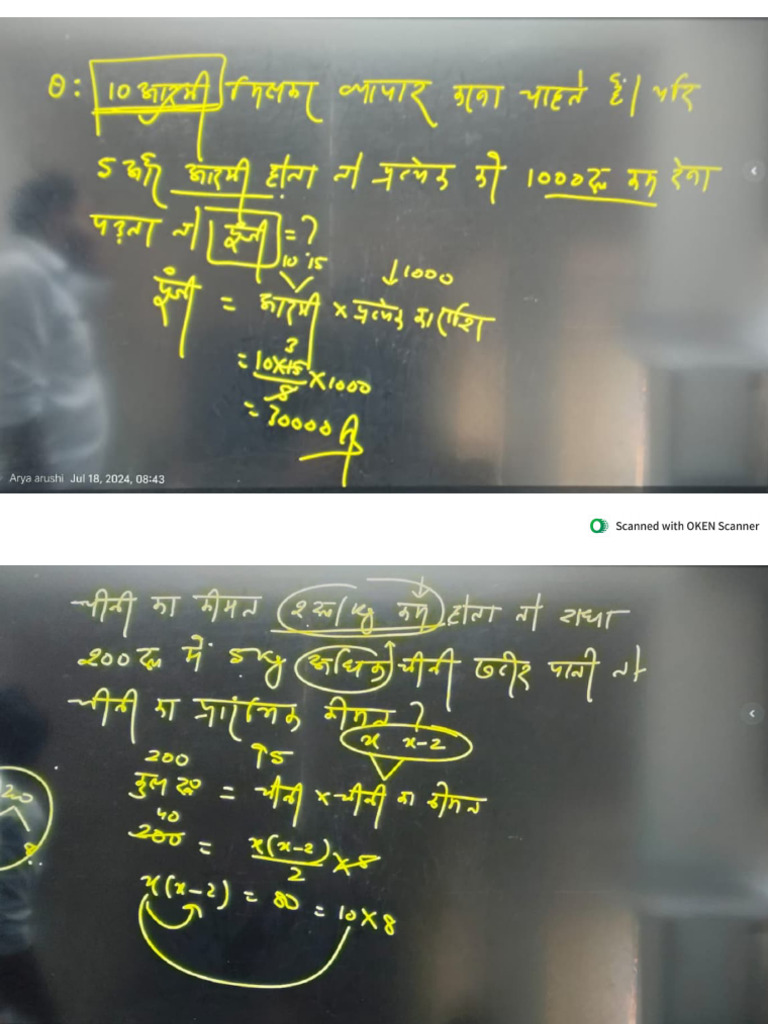 Q: 10 आदमी मिलकर व्यापार करना चाहते हैं। यदि
5 आदमी होता तो प्रत्येक को 1000 रू कम देना
पड़ता तो पूंजी = ?
10 15 ↓1000
पूंजी = आदमी × प्रत्येक का राशि
3
= 10×15/5 × 1000
= 30000 A
Arya arushi Jul 18, 2024, 08:43
Scanned with OKEN Scanner
चीनी का कीमत 2रू/kg कम होता तो राधा
200 रू में 5kg अधिक चीनी खरीद पाती तो
चीनी का प्रारंभिक कीमत ?
x x-2
200 ↑5
कुल रू = चीनी × चीनी का कीमत
40
200 = x(x-2)/2 × 5
x(x-2) = 80 = 10×8